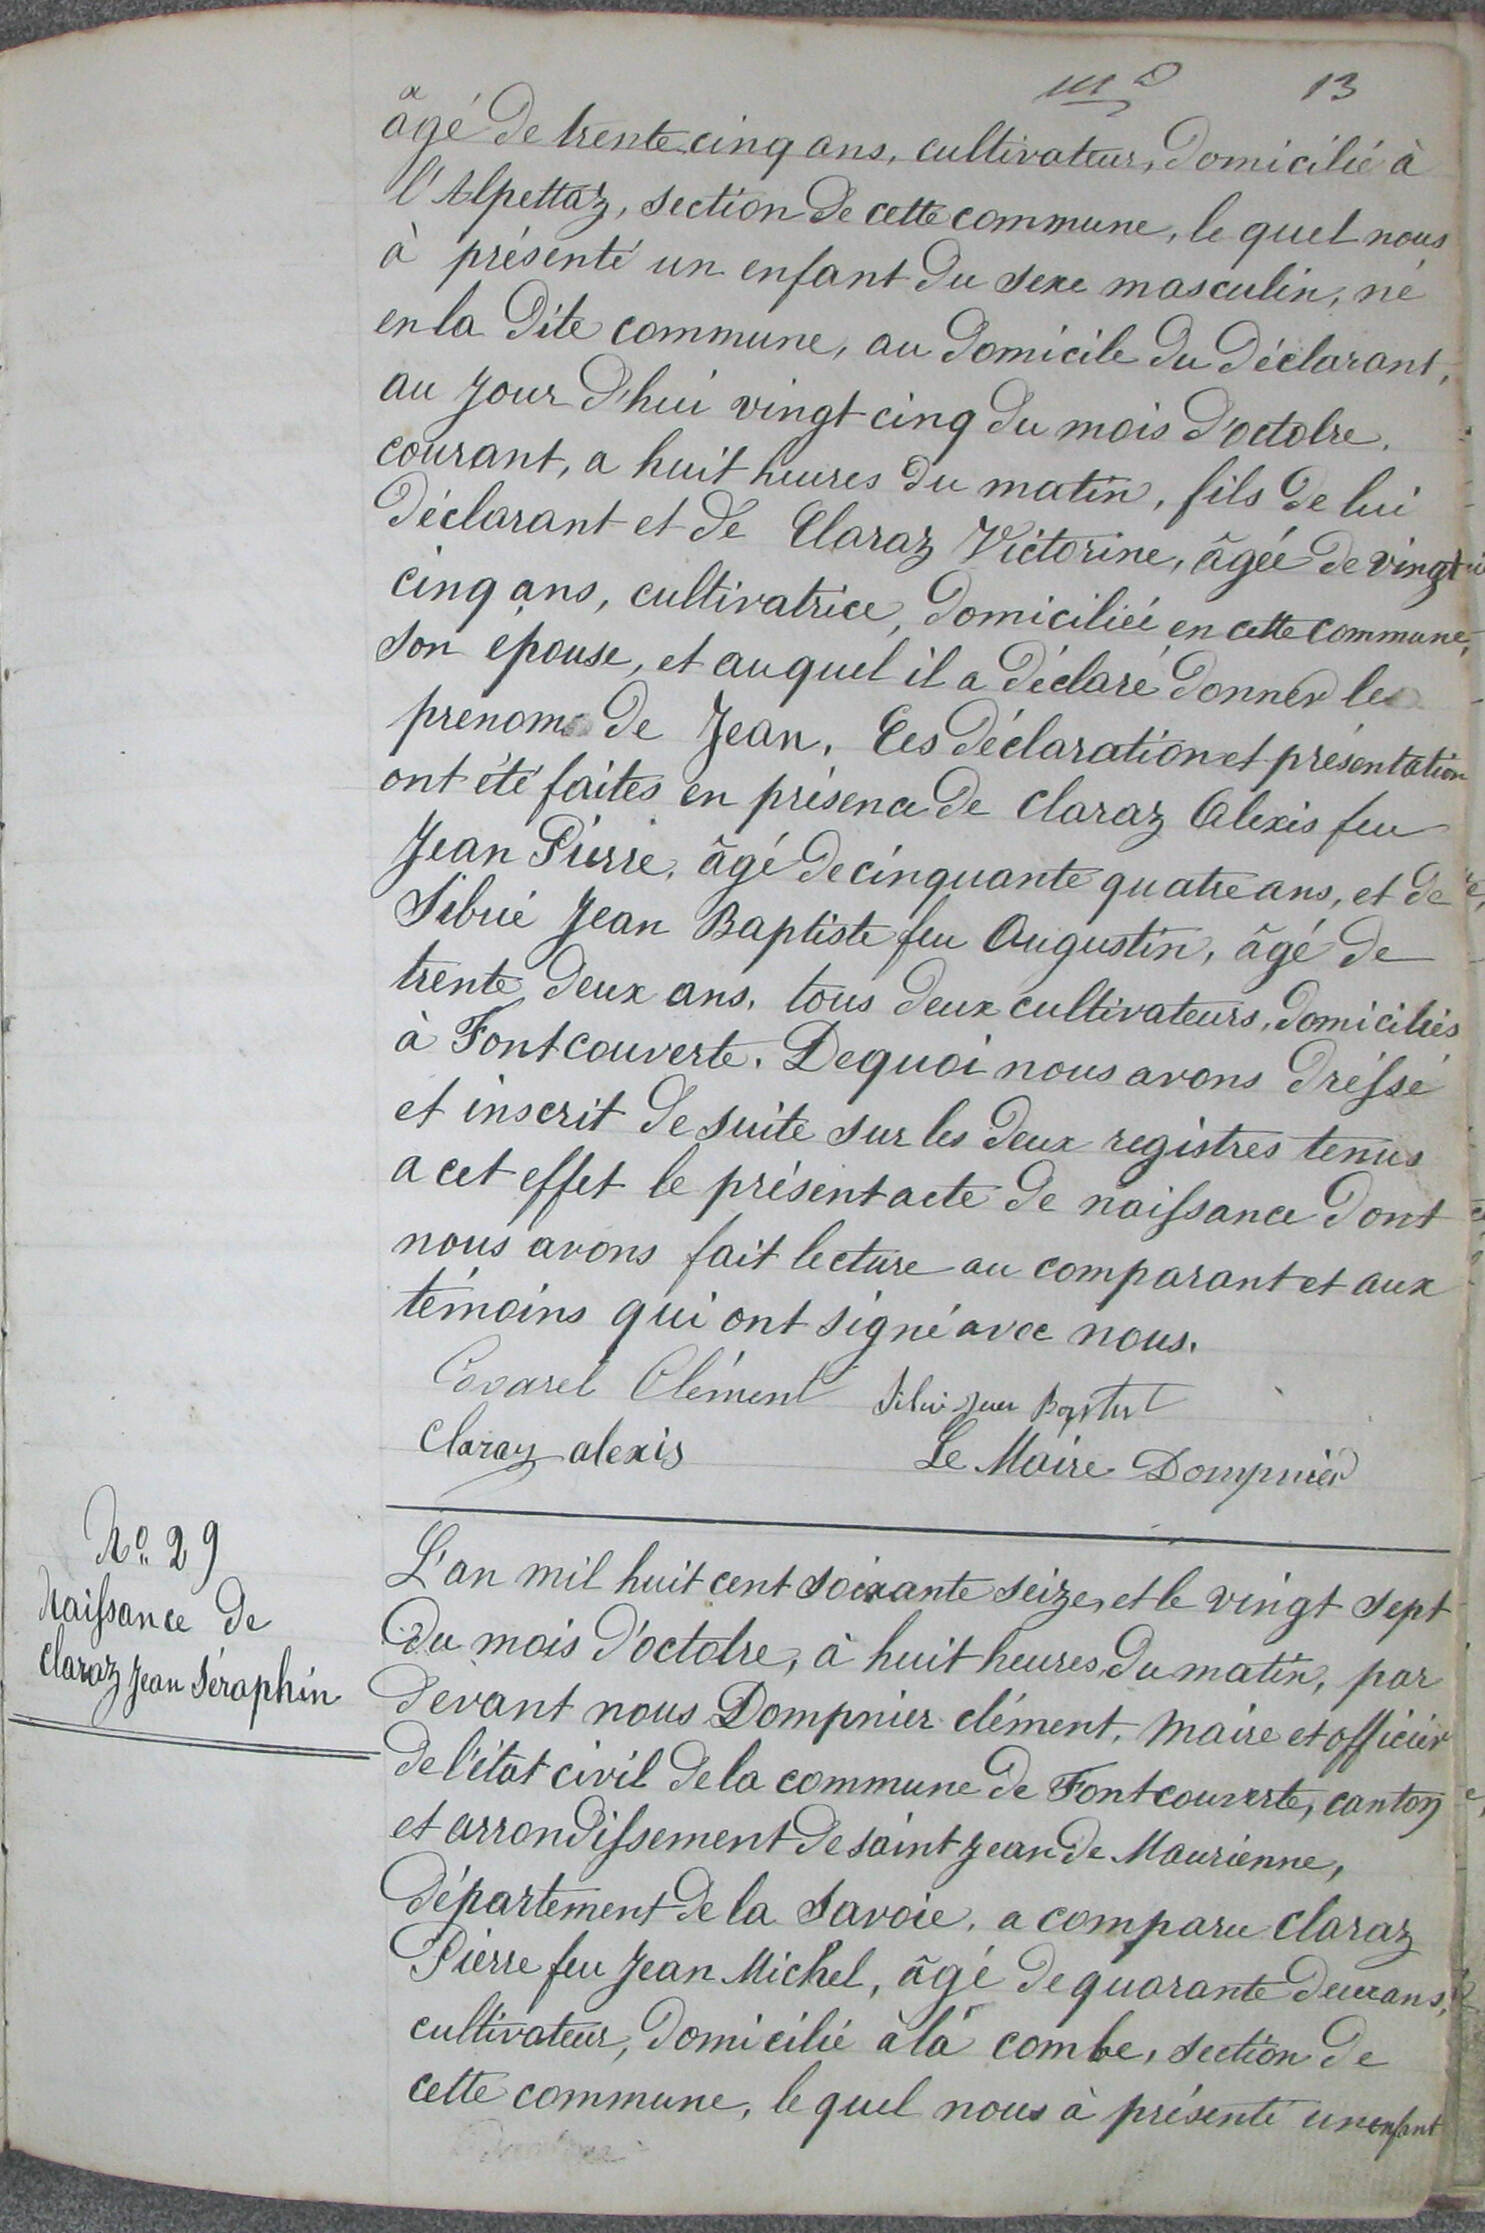 13
âgé de trente cinq ans, cultivateur, domicilié à
l'Alpettaz, section de cette commune, le quel nous
à présenté un enfant du sexe masculin, né
en la dite commune, au domicile du déclarant,
au jour d'hui vingt-cinq du mois d'octobre,
courant, a huit heures du matin, fils de lui
déclarant et de Claraz Victorine, âgée de vingt
cinq ans, cultivatrice, domiciliée en cette commune,
son épouse, et au quel il a déclaré donner le
prenom de Jean. Ces déclaration et présentation
ont été faites en présence de Claraz Alexis feu
Jean Pierre, âgé de cinquante quatre ans, et de
Sibué Jean Baptiste feu Augustin, âgé de
trente deux ans, tous deux cultivateurs, domiciliés
à Fontcouverte. De quoi nous avons dressé
et inscrit de suite sur les deux registres tenus
a cet effet le présent acte de naissance dont
nous avons fait lecture au comparant et aux
témoins qui ont signé avec nous.
Covarel Clément Sibué Jean Baptist
Claraz alexis Le Maire Dompnier
No. 29
Naissance de
Claraz Jean Séraphin
L'an mil huit cent soixante seize, et le vingt sept
du mois d'octobre, à huit heures du matin, par
devant nous Dompnier clément, Maire et officier
de l'état civil de la commune de Fontcouverte, canton
et arrondissement de saint Jean de Maurienne,
département de la Savoie, a comparu Claraz
Pierre feu Jean Michel, âgé de quarante deux ans,
cultivateur, domicilié à la combe, section de
cette commune, le quel nous à présenté un enfant